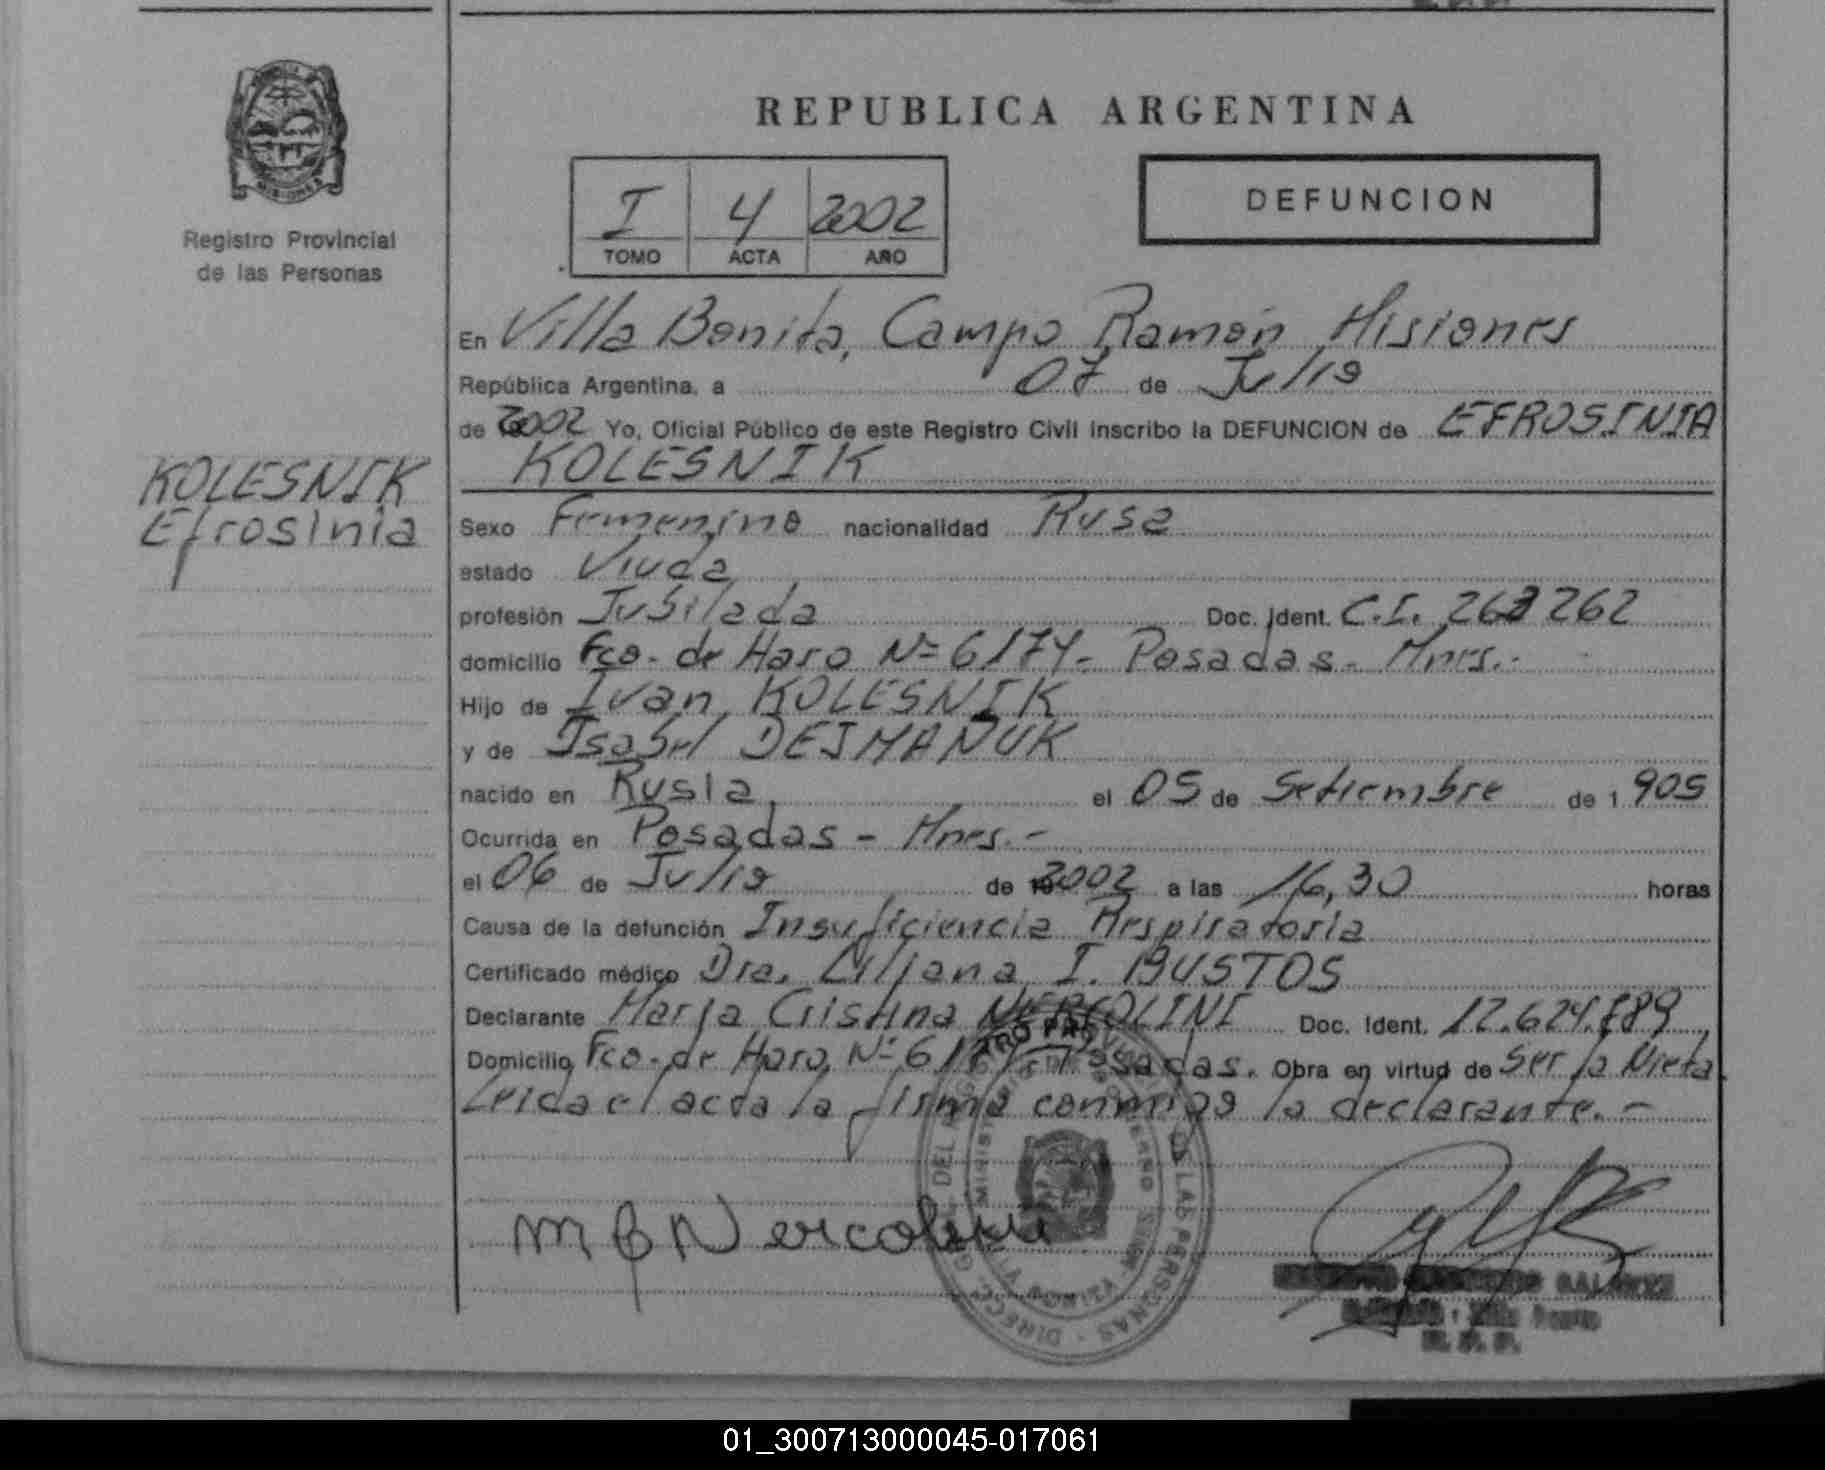 REPUBLICA ARGENTINA
Registro Provincial
de las Personas
I 4 2002
TOMO ACTA AÑO
DEFUNCION
En Villa Bonita, Campo Ramón Misiones
República Argentina, a 07 de Julio
de 2002 Yo, Oficial Público de este Registro Civil inscribo la DEFUNCION de EFROSINIA
KOLESNIK
KOLESNIK
Efrosinia
Sexo Femenino nacionalidad Rusa
estado Viuda
profesión Jubilada Doc. Ident. C.I. 263262
domicilio Fco. de Haro Nº 6174- Posadas- Mnes.-
Hijo de Ivan KOLESNIK
y de Isabel DEJMANUK
nacido en Rusia, el 05 de Setiembre de 1 905
Ocurrida en Posadas - Mnes.-
el 06 de Julio de 2002 a las 16,30 horas
Causa de la defunción Insuficiencia Respiratoria
Certificado médico Dra. Liliana I. BUSTOS
Declarante María Cristina NERCOLINI Doc. Ident. 12.624.789
Domicilio Fco. de Haro, Nº 6174 Posadas. Obra en virtud de Ser la Nieta
Leida el acta la firma conmigo la declarante.-
DIRECC. GRAL. DEL REGISTRO PROVINCIAL DE LAS PERSONAS
MINISTERIO DE GOBIERNO
M C Nercolini
01_300713000045-017061